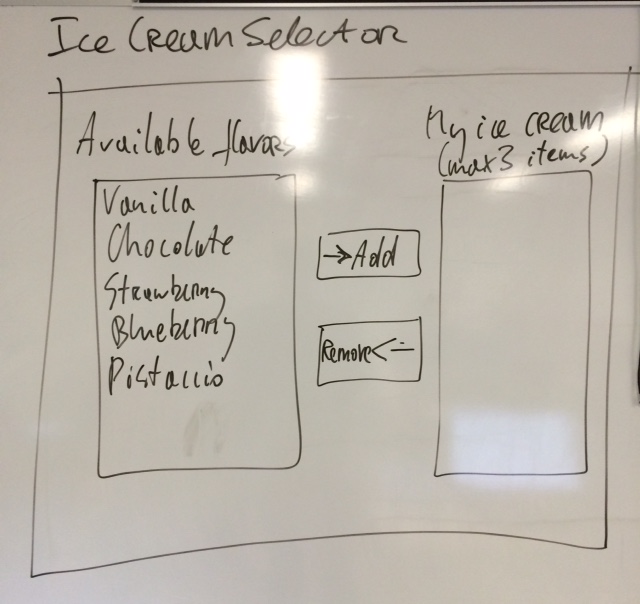 Ice Cream Selector
Available flavors
Vanilla
Chocolate
Strawberry
Blueberry
Pistaccio
→Add
Remove←
My ice cream
(max 3 items)